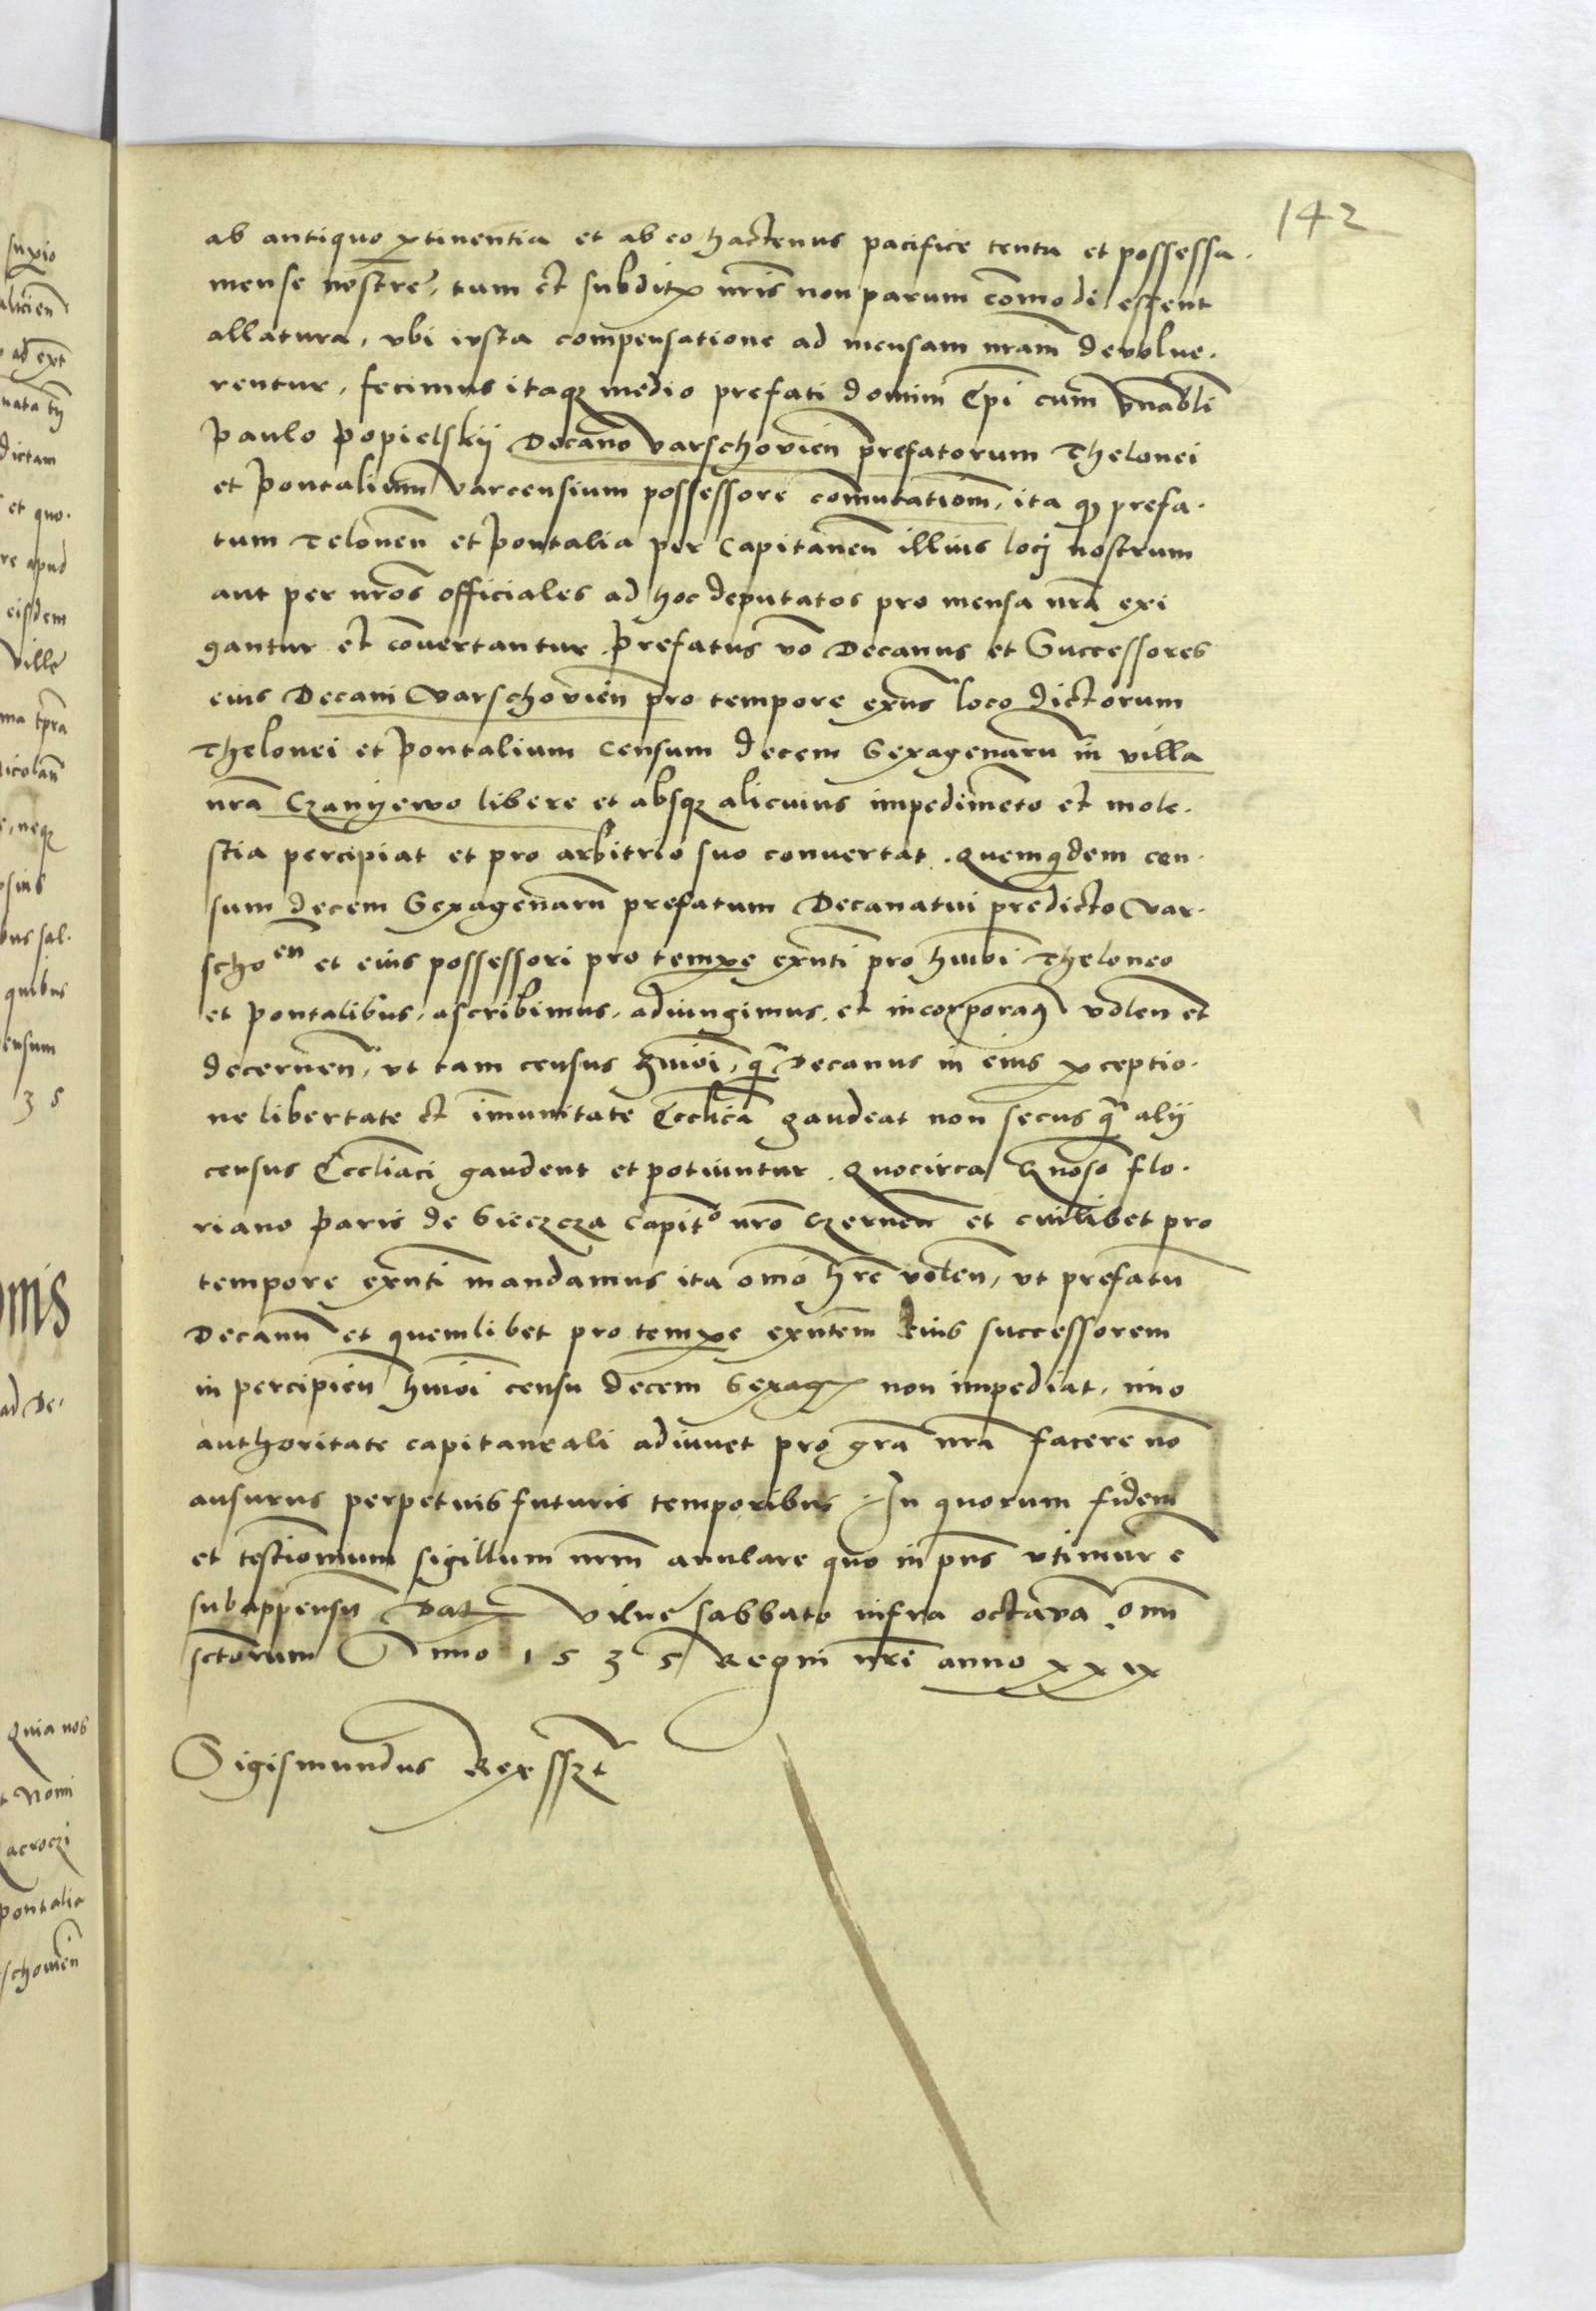 142
ab antiquo ptinentia et ab eo hactenus pacifice tenta et possessa.
mense nostre, tum et subditis nris non parum cōmodi essent
allatura, vbi iusta compensatione ad mensam nram devolue.
rentur, fecimus itaq medio prefati domini Epi cum vnabli
Paulo Popielskij Decano Varschovien prefatorum Thelonei
et Pontalium Varcensium possessore cōmutationem, ita q prefa.
tum Teloneū et Pontalia per Capitaneū illius loci nostrum
aut per nros officiales ad hoc deputatos pro mensa nra exi
gantur et cōvertantur. Prefatus vo Decanus et Successores
eius Decani Varschovien pro tempore exns loco dictorum
Thelonei et Pontalium Censum decem Sexagenaru in villa
nra Czanijewo libere et absq alicuius impedimēto et mole.
stia percipiat et pro arbitrio suo convertat. Quemqdem cen.
sum decem Sexagenarū prefatum Decanatui predicto Var.
schoen et eius possessori pro tempe exnti pro hmoi Theloneo
et Pontalibus, ascribimus, adiungimus, et incorporam volen et
decernen, vt tam census hmoi, q Decanus in eius pceptio.
ne libertate et īmunitate Ecclica gaudeat non secus q alij
census Eccliaci gaudent et potiuntur. Quocirca Gnoso Flo.
riano Paris de Sieczcza Capito nro Czernen et cuilibet pro
tempore exnti mandamus ita omo hre volen, vt prefatū
Decanū et quemlibet pro tempe exntem eius successorem
in percipien hmoi censu decem Sexag non impediat, imo
authoritate capitaneali adiuvet pro gra nra facere nō
ausurus perpetuis futuris temporibus. In quorum fidem
et testimonium sigillum nrm anulare quo in pns vtimur e
subappensū Dat Vilne sabbato infra octavā omi
sctorum Anno 1535 Regni nri anno xxix
Sigismundus Rex sszt
supio
alicien
ad ext
dictam
et quo.
re apud
eisdem
Ville
icolan
neq
psius
bus sal.
quibus
ensum
35
ad De.
Quia nos
t Nomi
acroczi
Pontalia
schovien